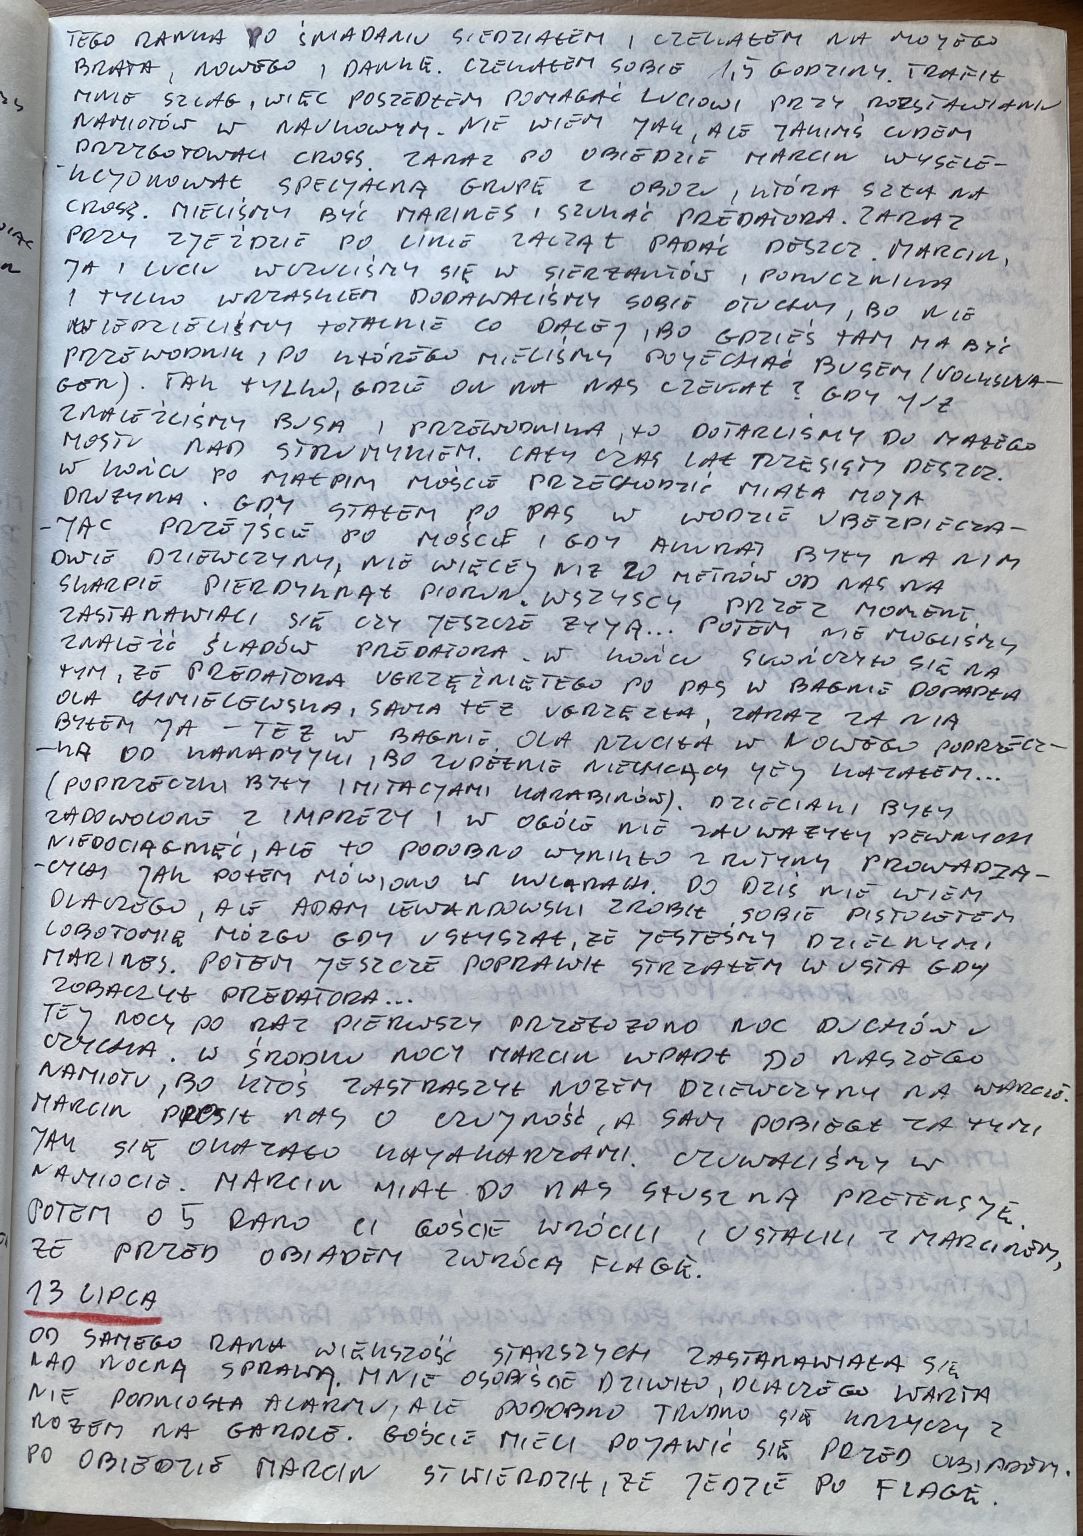 TEGO RANKA PO ŚNIADANIU SIEDZIAŁEM I CZEKAŁEM NA MOJEGO
BRATA, NOWEGO I DANKĘ. CZEKAŁEM SOBIE 1,5 GODZINY. TRAFIŁ
MNIE SZLAG, WIĘC POSZEDŁEM POMAGAĆ LUCIOWI PRZY ROZSTAWIANIU
NAMIOTÓW W NAUKOWYM. NIE WIEM JAK, ALE JAKIMŚ CUDEM
PRZYGOTOWALI CROSS. ZARAZ PO OBIEDZIE MARCIN WYSELE-
-KCJONOWAŁ SPECJALNĄ GRUPĘ Z OBOZU, KTÓRA SZŁA NA
CROSS. MIELIŚMY BYĆ MARINES I SZUKAĆ PREDATORA. ZARAZ
PRZY ZJEŹDZIE PO LINIE ZACZĄŁ PADAĆ DESZCZ. MARCIN,
JA I LUCIU WCZULIŚMY SIĘ W SIERŻANTÓW I PORUCZNIKA
I TYLKO WRZASKIEM DODAWALIŚMY SOBIE OTUCHY, BO NIE
WIEDZIELIŚMY TOTALNIE CO DALEJ, BO GDZIEŚ TAM MA BYĆ
PRZEWODNIK, PO KTÓREGO MIELIŚMY POJECHAĆ BUSEM (VOLKSWA-
GEN). TAK TYLKO, GDZIE ON NA NAS CZEKAŁ? GDY JUŻ
ZNALEŹLIŚMY BUSA I PRZEWODNIKA, TO DOTARLIŚMY DO MAŁEGO
MOSTU NAD STRUMYKIEM. CAŁY CZAS LAŁ RZĘSISTY DESZCZ.
W KOŃCU PO MAŁPIM MOŚCIE PRZECHODZIĆ MIAŁA MOJA
DRUŻYNA. GDY STAŁEM PO PAS W WODZIE UBEZPIECZA-
-JĄC PRZEJŚCIE PO MOŚCIE I GDY AKURAT BYŁY NA NIM
DWIE DZIEWCZYNY, NIE WIĘCEJ NIŻ 20 METRÓW OD NAS NA
SKARPIE PIERDYKNĄŁ PIORUN. WSZYSCY PRZEZ MOMENT
ZASTANAWIALI SIĘ CZY JESZCZE ŻYJĄ... POTEM NIE MOGLIŚMY
ZNALEŹĆ ŚLADÓW PREDATORA. W KOŃCU SKOŃCZYŁO SIĘ NA
TYM, ŻE PREDATORA UGRZĘŹNIĘTEGO PO PAS W BAGNIE DOPADŁA
OLA CHMIELEWSKA, SAMA TEŻ UGRZĘZŁA, ZARAZ ZA NIĄ
BYŁEM JA – TEŻ W BAGNIE. OLA RZUCIŁA W NOWEGO POPRZECZ-
-KĄ OD KANADYJKI, BO ZUPEŁNIE NIECHCĄCY JEJ KAZAŁEM...
(POPRZECZKI BYŁY IMITACJAMI KARABINÓW). DZIECIAKI BYŁY
ZADOWOLONE Z IMPREZY I W OGÓLE NIE ZAUWAŻYŁY PEWNYCH
NIEDOCIĄGNIĘĆ, ALE TO PODOBNO WYNIKŁO Z RUTYNY PROWADZĄ-
-CYCH JAK POTEM MÓWIONO W KULARACH. DO DZIŚ NIE WIEM
DLACZEGO, ALE ADAM LEWANDOWSKI ZROBIŁ SOBIE PISTOLETEM
LOBOTOMIĘ MÓZGU GDY USŁYSZAŁ, ŻE JESTEŚMY DZIELNYMI
MARINES. POTEM JESZCZE POPRAWIŁ STRZAŁEM W USTA GDY
ZOBACZYŁ PREDATORA...
TEJ NOCY PO RAZ PIERWSZY PRZEŁOŻONO NOC DUCHÓW U
CZYCHA. W ŚRODKU NOCY MARCIN WPADŁ DO NASZEGO
NAMIOTU, BO KTOŚ ZASTRASZYŁ NOŻEM DZIEWCZYNY NA WARCIE.
MARCIN PROSIŁ NAS O CZUJNOŚĆ, A SAM POBIEGŁ ZA TYMI
JAK SIĘ OKAZAŁO KAJAKARZAMI. CZUWALIŚMY W
NAMIOCIE. MARCIN MIAŁ DO NAS SŁUSZNĄ PRETENSJĘ.
POTEM O 5 RANO CI GOŚCIE WRÓCILI I USTALILI Z MARCINEM,
ŻE PRZED OBIADEM ZWRÓCĄ FLAGĘ.
13 LIPCA
OD SAMEGO RANA WIĘKSZOŚĆ STARSZYCH ZASTANAWIAŁA SIĘ
NAD NOCNĄ SPRAWĄ. MNIE OSOBIŚCIE DZIWIŁO, DLACZEGO WARTA
NIE PODNIOSŁA ALARMU, ALE PODOBNO TRUDNO SIĘ KRZYCZY Z
NOŻEM NA GARDLE. GOŚCIE MIELI POJAWIĆ SIĘ PRZED OBIADEM.
PO OBIEDZIE MARCIN STWIERDZIŁ, ŻE JEDZIE PO FLAGĘ.